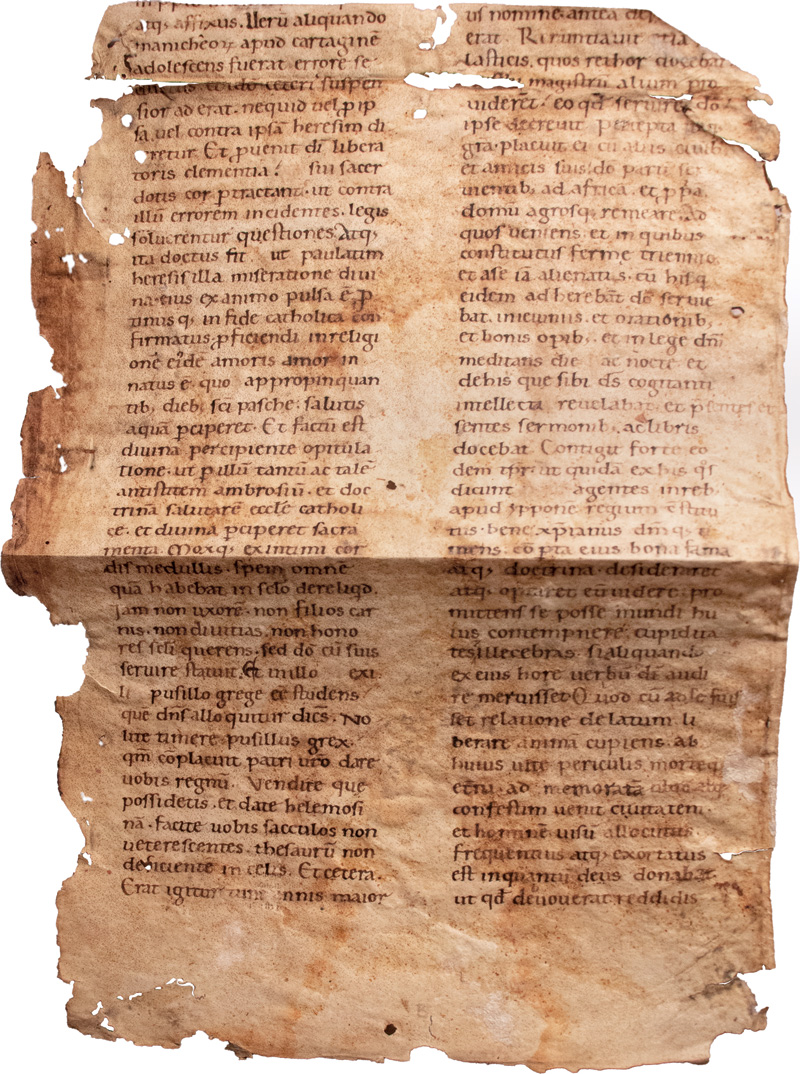 atq; affixus. Uerū aliquando
manicheoꝝ apud cartaginē
adolescens fuerat errore se
et ido ceteri suspen
sior aderat. nequid uel ꝑ ip
sā uel contra ipsā heresim di
retur. Et ꝓuenit dī libera
toris clementia sui sacer
dotis cor ꝑtractant. ut contra
illū errorem incidentes. legis
soluerentur questiones. Atq;
ita doctus fit ut paulatim
heresis illa miseratione diui
na. eius ex animo pulsa ē. ꝓ
tinus q; in fide catholica con
firmatus. ꝓficiendi in religi
one eidē amoris amor in
natus ē. quo appropinquan
tib; dieb; sci pasche. salutis
aquā ꝑciperet. Et factū est
diuina percipiente opitula
tione. ut ꝑ illū tantū ac tale
antistitem ambrosiū. et doc
trinā salutarē eccle catholi
ce. et diuina ꝑciperet sacra
menta. Mox q; ex intimi cor
dis medullis. spem omnē
quā habebat in sclo dereliqd.
Iam non uxorē. non filios car
nis. non diuitias. non hono
res scli querens. sed dō cū suis
seruire statuit. Et in illo exi
li pusillo grege eē studens
que dn̄s alloquitur dicēs. No
lite timere pusillus grex.
qm̄ cōplacuit patri uro dare
uobis regnū. Vendite que
possidetis. et date helemosi
nā. facite uobis sacculos non
ueterescentes. thesaurū non
deficiente in celis. Et cetera.
Erat igitur annis maior
us nomine. antea
erat. Rnuntiauit etiā
lasticis, quos rethor docebat
magistrū alium pro
uiderēt. eo qd̄ seruire dō
ipse decreuit. Percepta
gra. placuit ei cū aliis ciuib;
et amicis suis. dō pariter ser
uientib; ad africā. et ꝓpā
domū agrosq; remeare. Ad
quos ueniens. et in quibus
constitutus ferme triennio
et ase iā alienatis. cū his q
eidem adherebāt dō seruie
bat. ieiuniis. et orationib;
et bonis opib;. et in lege dn̄i
meditans die ac nocte. et
de his que sibi ds̄ cogitanti
intellecta reuelabat. et p̄sentes et
sentes sermonib; ac libris
docebat. Contigit forte eo
dem tp̄r. ut quidā ex his q̄s
dicunt agentes in reb;
apud yppone regium cōstitu
tus. bene xp̄ianus dm̄ q; ti
mens. cōpta eius bona fama
atq; doctrina. desideraret
atq; optaret eū uidere. pro
mittens se posse mundi hu
ius contempnere cupidita
tes. illecebras. si aliquando
ex eius hore uerbū dī audi
re meruisset. Quod cū ad se fuis
set relatione delatum. li
berare animā cupiens. ab
huius uite periculis morteq;
etnā. ad memoratā
confestim uenit ciuitatem.
et hominē uisu allocutus.
frequentius atq; exortatus
est inquantū deus donabat
ut qd̄ deuouerat reddidis